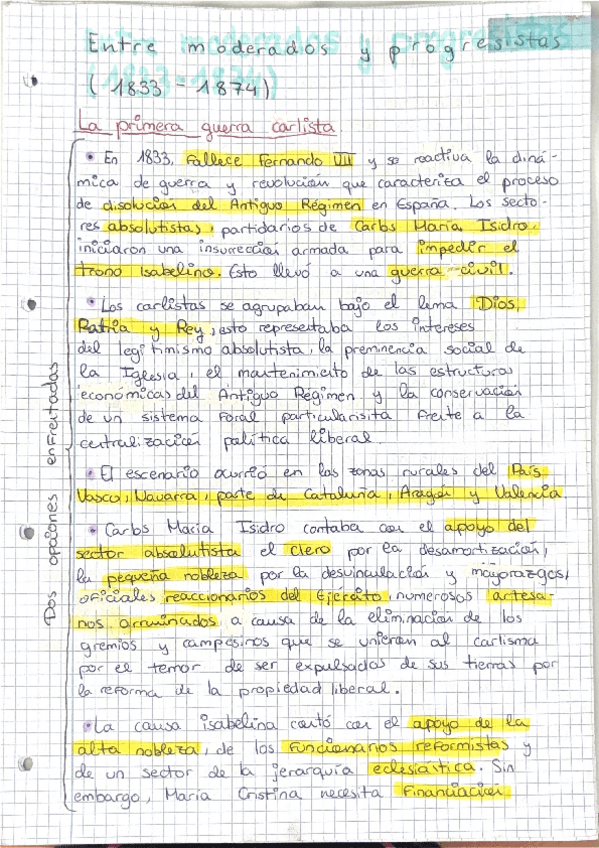 Entre moderados y progresistas
(1833 - 1874)
La primera guerra carlista
• En 1833, fallece Fernando VII y se reactiva la diná-
mica de guerra y revolución que caracteriza el proceso
de disolución del Antiguo Régimen en España. Los secto-
res absolutistas, partidarios de Carlos María Isidro,
iniciaron una insurrección armada para impedir el
trono Isabelino. Esto llevó a una guerra civil.
• Los carlistas se agrupaban bajo el lema Dios,
Patria y Rey, esto representaba los intereses
del legitimismo absolutista, la preminencia social de
la Iglesia, el mantenimiento de las estructuras
económicas del Antiguo Régimen y la conservación
de un sistema foral particularisita frente a la
centralización política liberal.
• El escenario ocurrió en las zonas rurales del País
Vasco, Navarra, parte de Cataluña, Aragón y Valencia.
• Carlos María Isidro contaba con el apoyo del
sector absolutista el clero por la desamortización,
la pequeña nobleza por la desvinculación y mayorazgos,
oficiales reaccionarios del Ejército, numerosos artesa-
nos arruinados a causa de la eliminación de los
gremios y campesinos que se unieron al carlismo
por el temor de ser expulsados de sus tierras por
la reforma de la propiedad liberal.
• La causa isabelina contó con el apoyo de la
alta nobleza, de los funcionarios reformistas y
de un sector de la jerarquía eclesiástica. Sin
embargo, María Cristina necesita financiación
Dos opciones enfrentadas